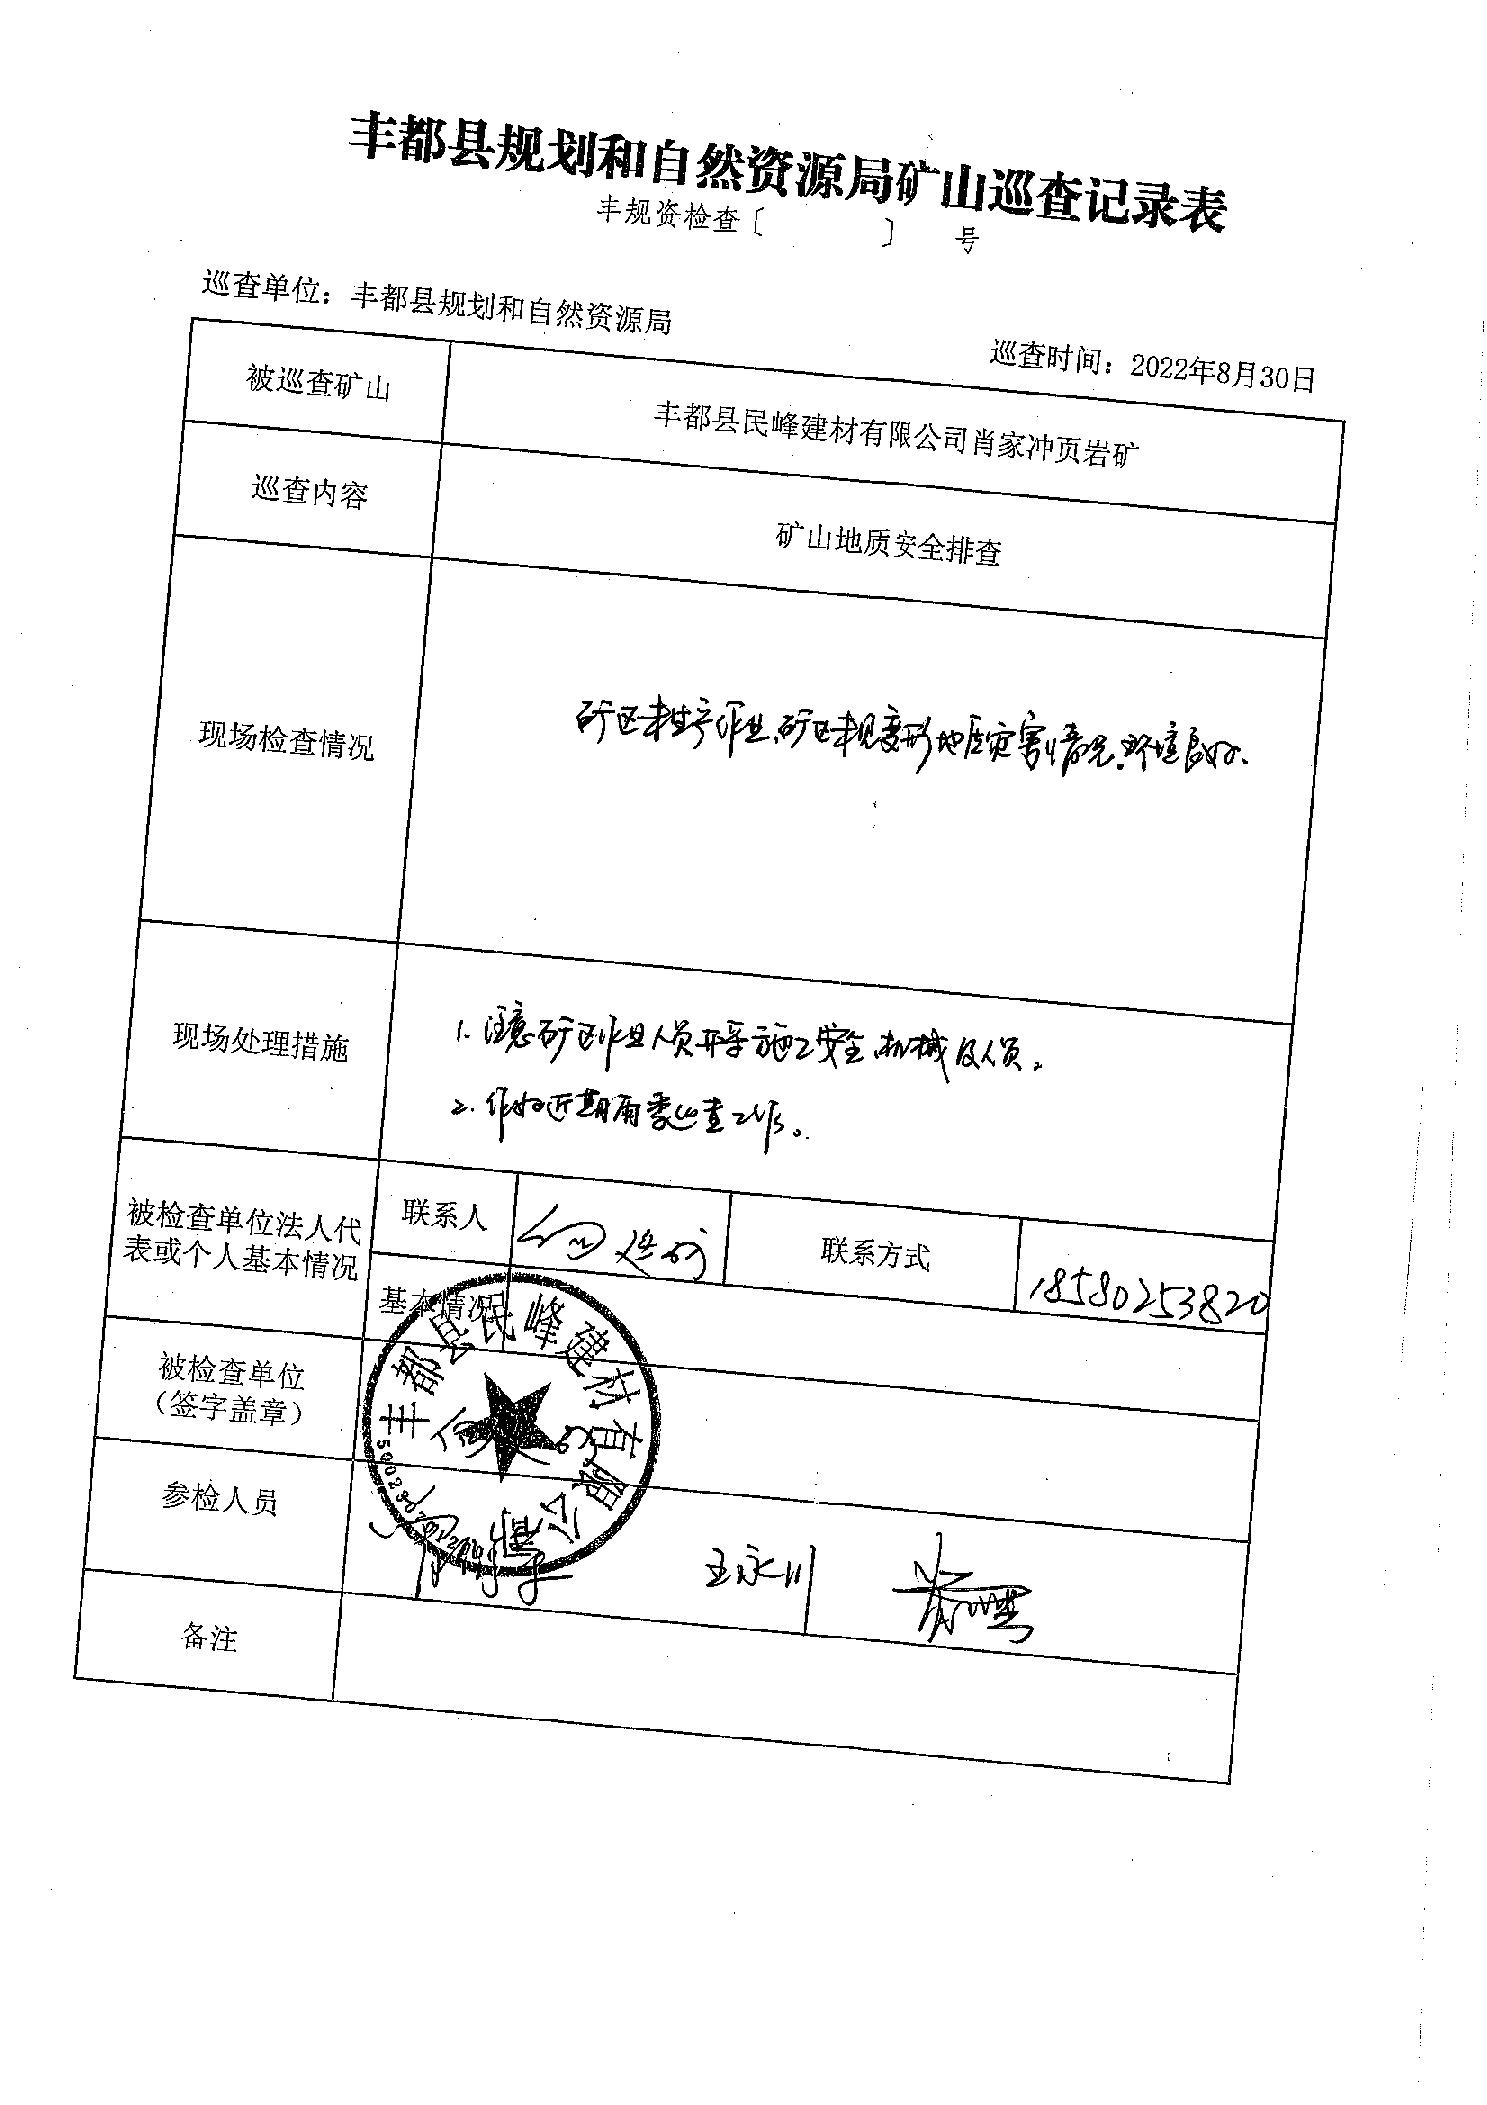 丰都县规划和自然资源局矿山巡查记录表
丰规资检查〔 〕 号
巡查单位：丰都县规划和自然资源局
巡查时间：2022年8月30日
被巡查矿山
丰都县民峰建材有限公司肖家冲页岩矿
巡查内容
矿山地质安全排查
现场检查情况
矿区未生产作业、矿区未见变形地质灾害情况。环境良好、
现场处理措施
1. 注意矿区作业人员开采施工安全、机械及人员。
2. 作好近期雨季巡查工作。
被检查单位法人代
表或个人基本情况
联系人
联系方式
18580253820
基本情况
被检查单位
（签字盖章）
丰都县民峰建材有限公
参检人员
王永川
备注